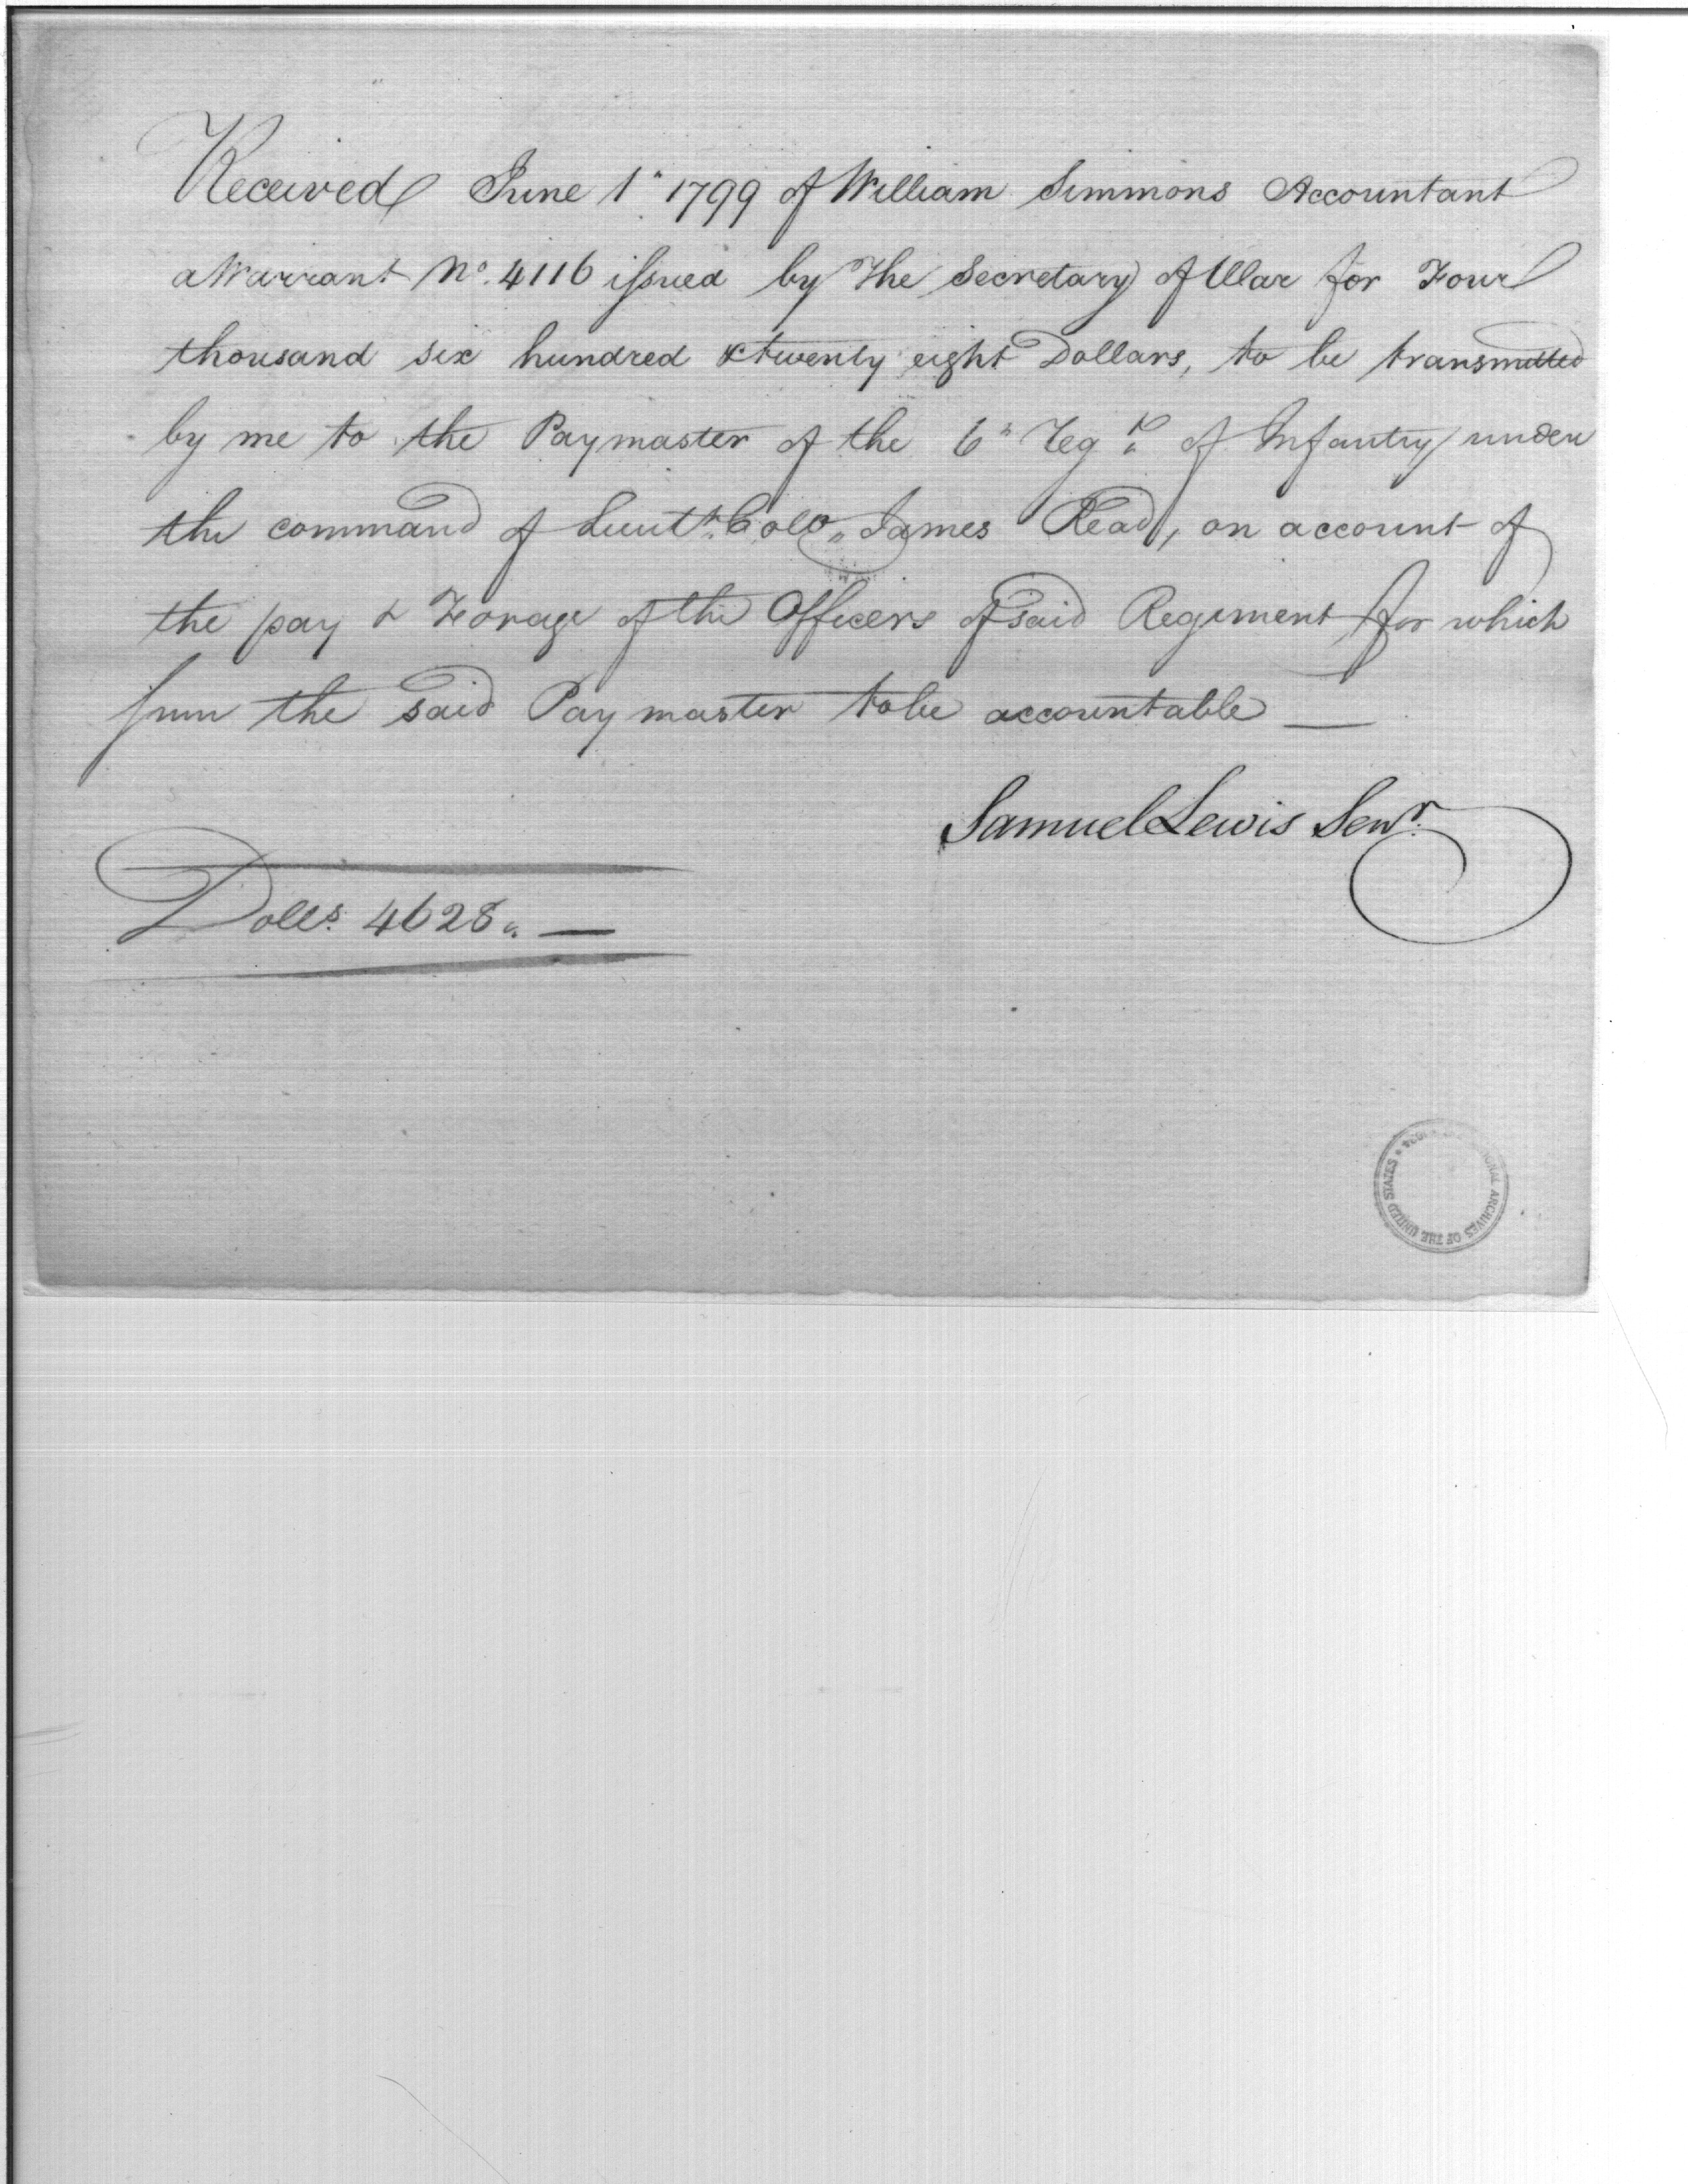 Received June 1" 1799 of William Simmons Accountant
a Warrant No. 4116 issued by The Secretary of War for Four
thousand six hundred & twenty eight Dollars, to be transmitted
by me to the Paymaster of the 6" Regt. of Infantry under
the command of Lieut. Colo. James Read, on account of
the pay & Forage of the Officers of said Regiment for which
sum the said Paymaster to be accountable —
Samuel Lewis Senr.
Dolls. 4628. —
ARCHIVES OF THE UNITED STATES